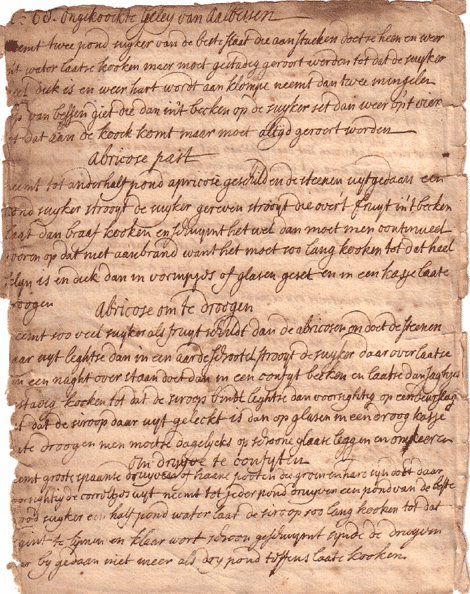 60. ongekoockte geley van aalbessen
neemt twee pond suyker van de beste slaet die aen stucken doetse heen en weer
int water laatse kooken maer moet gestadig geroort worden tot dat de suyker
heel dick is en weer hart wordt aan klompe neemt dan twee mingelen
sap van bessen giet die dan in't becken op de suyker set dan weer op't vier
tot dat aan de koock komt maer moet altyd geroort worden
Abricose past
neemt tot anderhalf pond apricose geschilt en de steenen uytgedaan een
pond suyker strooyt de suyker gereven strooyt die over't fruyt in't becken
laat dan braaf kooken en schuymt het wel dan moet men continueel
rooren op dat niet aanbrand want het moet soo lang kooken tot dat heel
fyn is en dick dan in of glasen geset en in een kasje laate
droogen
Abricose om te droogen
neemt soo veel suyker als fruyt schilt dan de abricosen en doet de steenen
daar uyt leghtse dan in een aarde schootel strooyt de suyker daar over laatse
en een naght over staan doetse dan in een confyt becken en laatse dan
gestadig koocken tot dat de siroop leghtse dan voorsightig op een
tot dat de siroop daar uyt geleckt is dan op glasen in een droog kasje
late droogen men moetse dagelycks op schoone glaase leggen en omkeeren
om druyve te confyten
neemt groote spaanse druyven of haane pooten die groen en hart syn doet daar
voorsightig de correltjes uyt neemt tot jeder pond druyven een pond van de beste
brood suyker een half pond water laat de siroop soo lang koocken tot dat
begint te lymen en klaar wort schoon geschuymt synde de druyven
daar by gedaan niet meer als dry pond teffens laate koocken